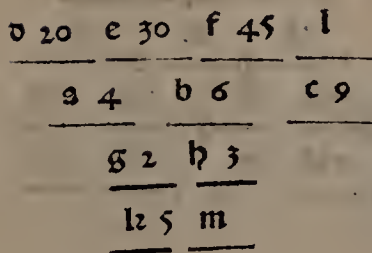 d 20 e 30 f 45 l
a 4 b 6 c 9
g 2 h 3
k 5 m